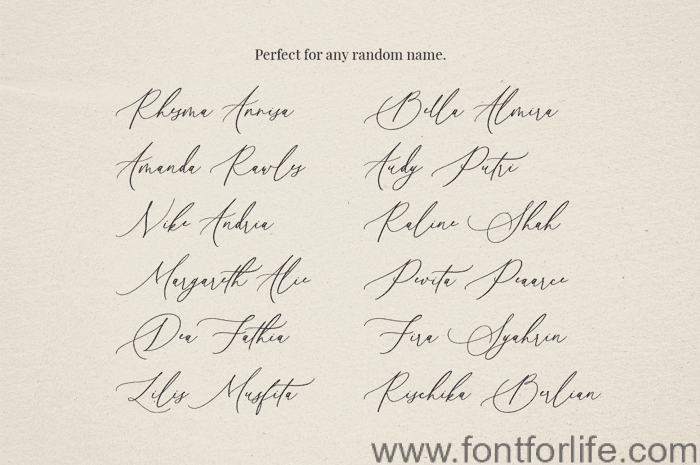 Perfect for any random name.
Rhesma Annisa
Bella Almira
Amanda Rawles
Audy Putri
Nike Andria
Raline Shah
Margareth Alie
Pevita Peaarce
Dea Fathia
Fira Syahrin
Lilis Musfita
Rischika Berlian
www.fontforlife.com